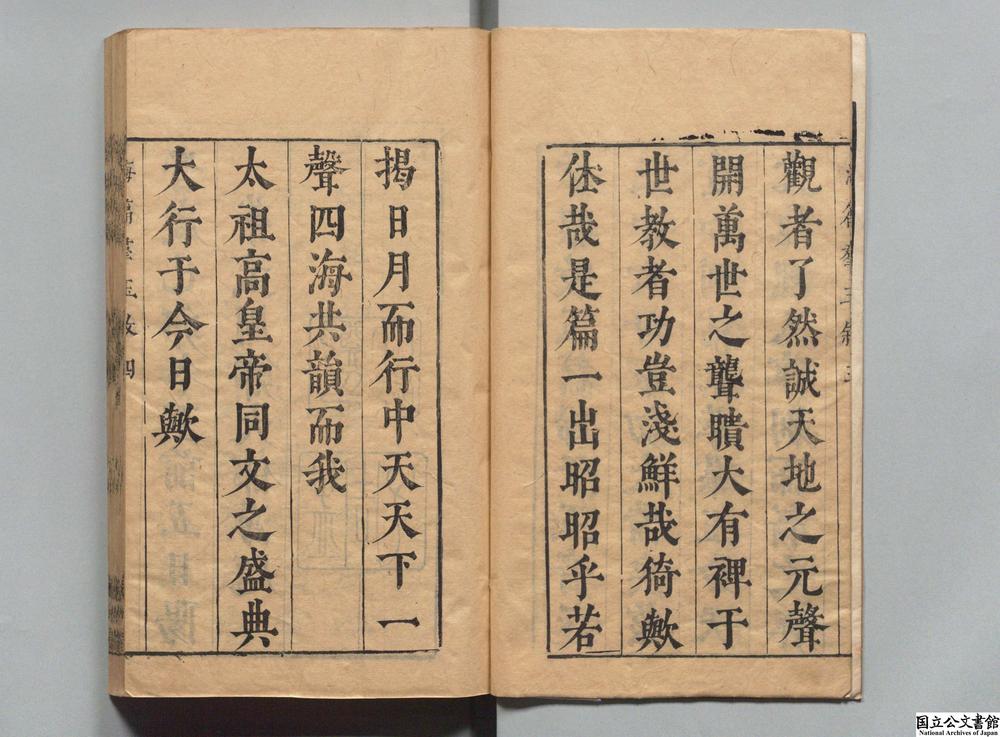 觀者了然誠天地之元聲
開萬世之聾聵大有裨于
世教者功豈淺鮮哉猗歟
休哉是篇一出昭昭乎若
揭日月而行中天天下一
聲四海共韻而我
太祖高皇帝同文之盛典
大行于今日歟
国立公文書館
National Archives of Japan